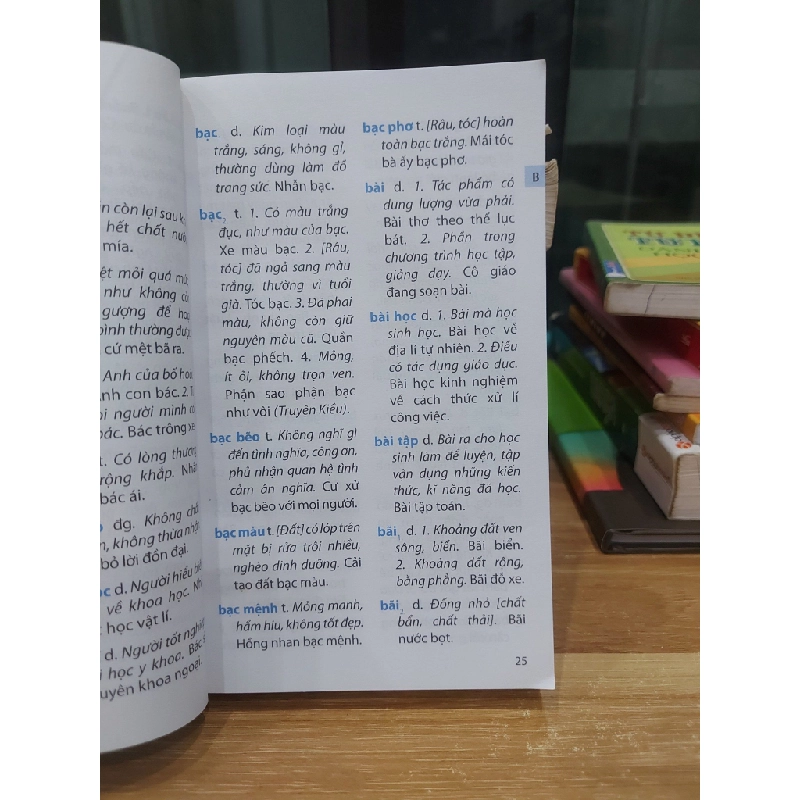 n còn lại sau k
hết chốt nướ
mía.
ệt mỏi quá mứ
như không cò
gượng để ho
bình thường được
cứ mệt bã ra.
Anh của bố hoặ
nh con bác. 2. T
i người mình c
bác. Bác trông xe
t. Có lòng thươ
rộng khắp. Nh
bác ái.
đg. Không ch
n, không thừa nhậ
bỏ lời đồn đại.
c d. Người hiểu bi
về khoa học. Nh
học vật lí.
d. Người tốt nghiệ
i học y khoa. Bác s
uyên khoa ngoại.
bạc d. Kim loại màu
trắng, sáng, không gỉ,
thường dùng làm đồ
trang sức. Nhẫn bạc.
bạc, t. 1. Có màu trắng
đục, như màu của bạc.
Xe màu bạc. 2. [Râu,
tóc] đã ngả sang màu
trắng, thường vì tuổi
già. Tóc bạc. 3. Đã phai
màu, không còn giữ
nguyên màu cũ. Quần
bạc phếch. 4. Mỏng,
ít ỏi, không trọn vẹn.
Phận sao phận bạc
như vôi (Truyện Kiều).
bạc bẽo t. Không nghĩ gì
đến tình nghĩa, công ơn,
phủ nhận quan hệ tình
cảm ân nghĩa. Cư xử
bạc bẽo với mọi người.
bạc màu t. [Đất] có lớp trên
mặt bị rửa trôi nhiều,
nghèo dinh dưỡng. Cải
tạo đất bạc màu.
bạc mệnh t. Mỏng manh,
hẩm hiu, không tốt đẹp.
Hồng nhan bạc mệnh.
bạc phơ t. [Râu, tóc] hoàn
toàn bạc trắng. Mái tóc
bà ấy bạc phơ.
bài d. 1. Tác phẩm có
dung lượng vừa phải.
Bài thơ theo thể lục
bát. 2. Phần trong
chương trình học tập,
giảng dạy. Cô giáo
đang soạn bài.
bài học d. 1. Bài mà học
sinh học. Bài học về
địa lí tự nhiên. 2. Điều
có tác dụng giáo dục.
Bài học kinh nghiệm
về cách thức xử lí
công việc.
bài tập d. Bài ra cho học
sinh làm để luyện, tập
vận dụng những kiến
thức, kĩ năng đã học.
Bài tập toán.
bãi, d. 1. Khoảng đất ven
sông, biển. Bãi biển.
2. Khoảng đất rộng,
bằng phẳng. Bãi đỗ xe.
bãi, d. Đống nhỏ [chất
bẩn, chất thải]. Bãi
nước bọt.
B
25